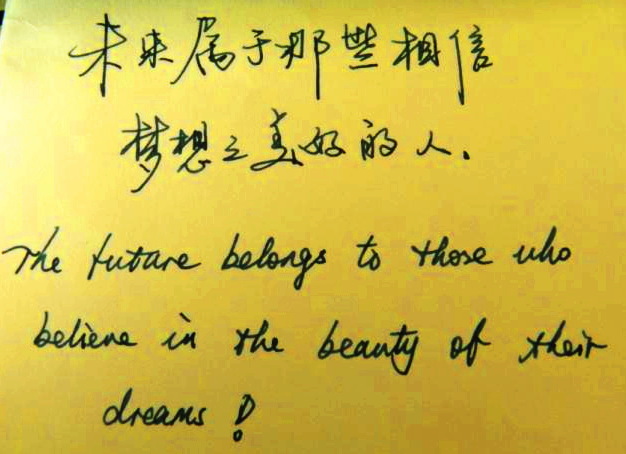 未来属于那些相信
梦想之美好的人.
The future belongs to those who
believe in the beauty of their
dreams!